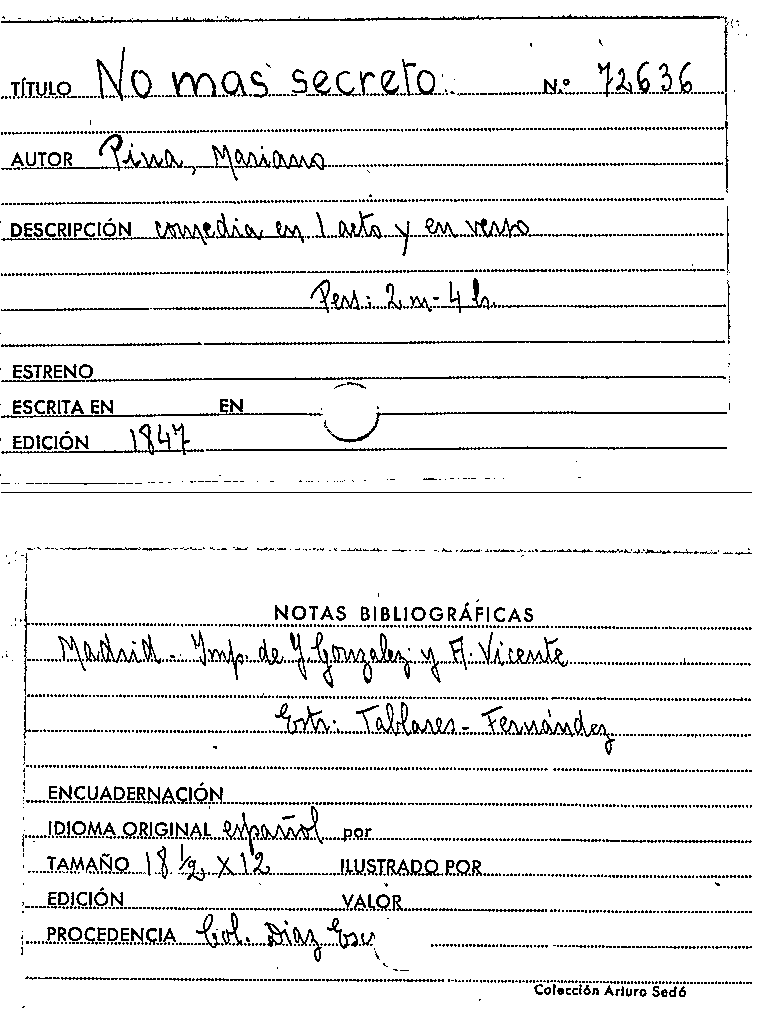 TÍTULO No mas secreto N.º 72636
AUTOR Pina, Mariano
DESCRIPCIÓN comedia en 1 acto y en verso
Pers: 2 m- 4 h.
ESTRENO
ESCRITA EN EN
EDICIÓN 1847
NOTAS BIBLIOGRÁFICAS
Madrid - Ymp. de Y. Gonzalez y A. Vicente
Estr: Tablares - Fernández
ENCUADERNACIÓN
IDIOMA ORIGINAL español por
TAMAÑO 18 1/2 X 12 ILUSTRADO POR
EDICIÓN VALOR
PROCEDENCIA Col. Diaz Esc
Colección Arturo Sedó